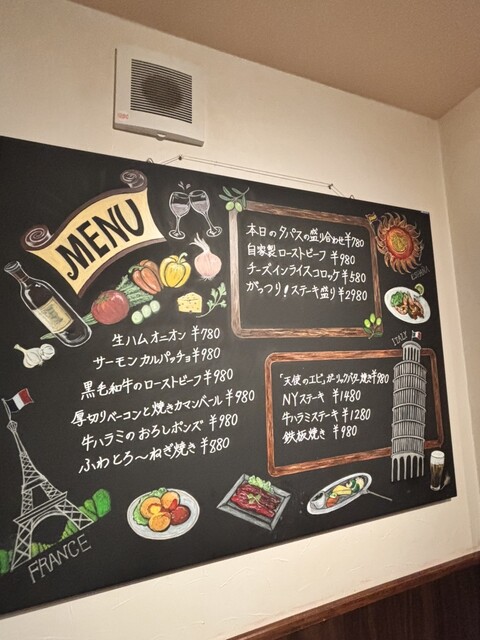 MENU
生ハムオニオン ¥780
サーモンカルパッチョ ¥980
黒毛和牛のローストビーフ ¥980
厚切りベーコンと焼きカマンベール ¥980
牛ハラミのおろしポンズ ¥980
ふわとろ〜ねぎ焼き ¥880
FRANCE
本日のタパスの盛り合わせ ¥780
自家製ローストビーフ ¥980
チーズインライスコロッケ ¥580
がっつり!ステーキ盛り ¥2980
ITALY
「天使のエビ」ガーリックバター焼き ¥980
NYステーキ ¥1480
牛ハラミステーキ ¥1280
鉄板焼き ¥980